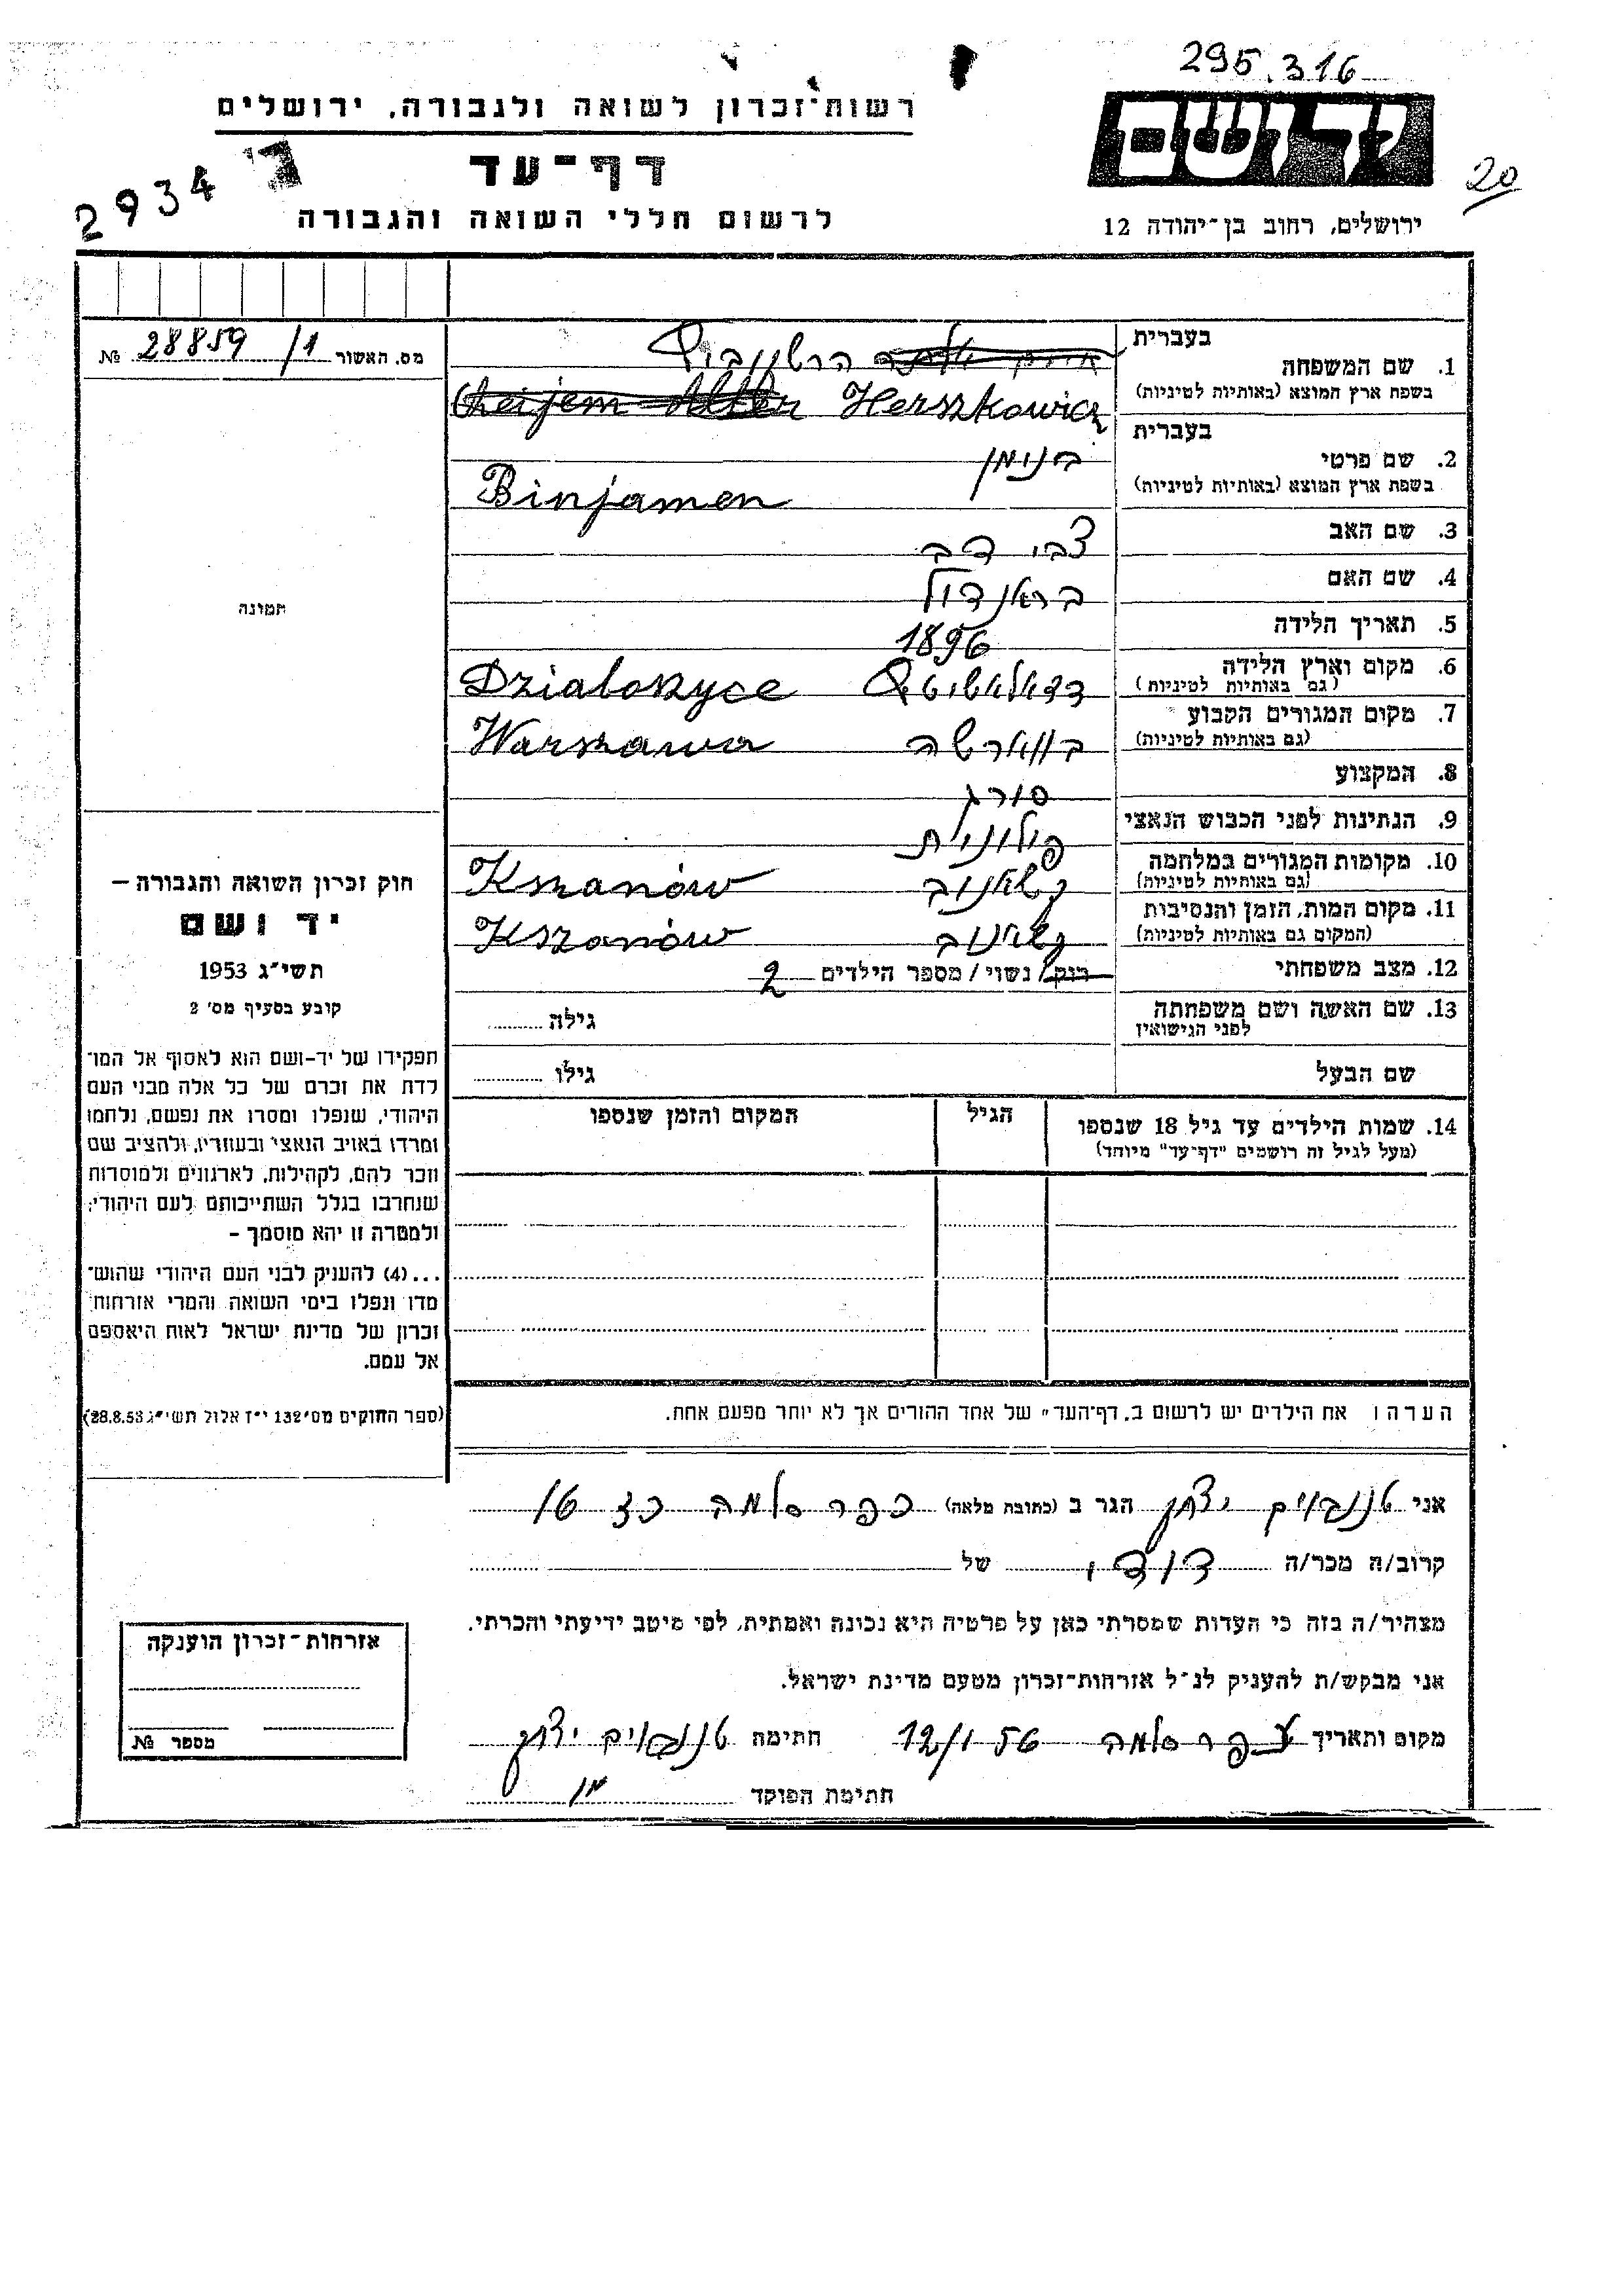 295.316
רשות־זכרון לשואה ולגבורה, ירושלים
יד ושם
דף־עד
20
2934
לרשום חללי השואה והגבורה
ירושלים, רחוב בן־יהודה 12
בעברית
1. שם המשפחה
בשפת ארץ המוצא (באותיות לטיניות)
הרשקוביץ
Herszkowicz
מס. האשור 28859/1 №
בעברית
2. שם פרטי
בשפת ארץ המוצא (באותיות לטיניות)
בנימן
Binjamen
3. שם האב צבי דב
4. שם האם בראנדול
5. תאריך הלידה 1896
6. מקום וארץ הלידה
(גם באותיות לטיניות)
Dzialoszyce
7. מקום המגורים הקבוע
(גם באותיות לטיניות)
בווארשה Warszawa
8. המקצוע סורג
9. הנתינות לפני הכבוש הנאצי פולונית
10. מקומות המגורים במלחמה
(גם באותיות לטיניות)
קשאנוב Kszanów
11. מקום המות, הזמן והנסיבות
(המקום גם באותיות לטיניות)
קשאנוב Kszanów
12. מצב משפחתי רווק/ נשוי/ מספר הילדים 2
13. שם האשה ושם משפחתה
לפני הנישואין
גילה
שם הבעל גילו
14. שמות הילדים עד גיל 18 שנספו
(מעל לגיל זה רושמים "דף־עד" מיוחד)
הגיל
המקום והזמן שנספו
הערה: את הילדים יש לרשום ב„דף־העד" של אחד ההורים אך לא יותר מפעם אחת.
תמונה
חוק זכרון השואה והגבורה –
יד ושם
תשי"ג 1953
קובע בסעיף מס' 2
תפקידו של יד־ושם הוא לאסוף אל המו־
לדת את זכרם של כל אלה מבני העם
היהודי, שנפלו ומסרו את נפשם, נלחמו
ומרדו באויב הנאצי ובעוזריו, ולהציב שם
וזכר להם, לקהילות, לארגונים ולמוסדות
שנחרבו בגלל השתייכותם לעם היהודי;
ולמטרה זו יהא מוסמך –
...(4) להעניק לבני העם היהודי שהוש־
מדו ונפלו בימי השואה והמרי אזרחות
זכרון של מדינת ישראל לאות היאספם
אל עמם.
(ספר החוקים מס' 132 י"ז אלול תשי"ג 28.8.53)
אני טננבוים יצחק הגר ב (כתובת מלאה) כפר סלמה כצ 16
קרוב/ה מכר/ה דודי של
מצהיר/ה בזה כי העדות שמסרתי כאן על פרטיה היא נכונה ואמתית, לפי מיטב ידיעתי והכרתי.
אני מבקש/ת להעניק לנ"ל אזרחות־זכרון מטעם מדינת ישראל.
מקום ותאריך כפר סלמה 12/1 56 חתימה טננבוים יצחק
חתימת הפוקד
אזרחות־זכרון הוענקה
מספר №